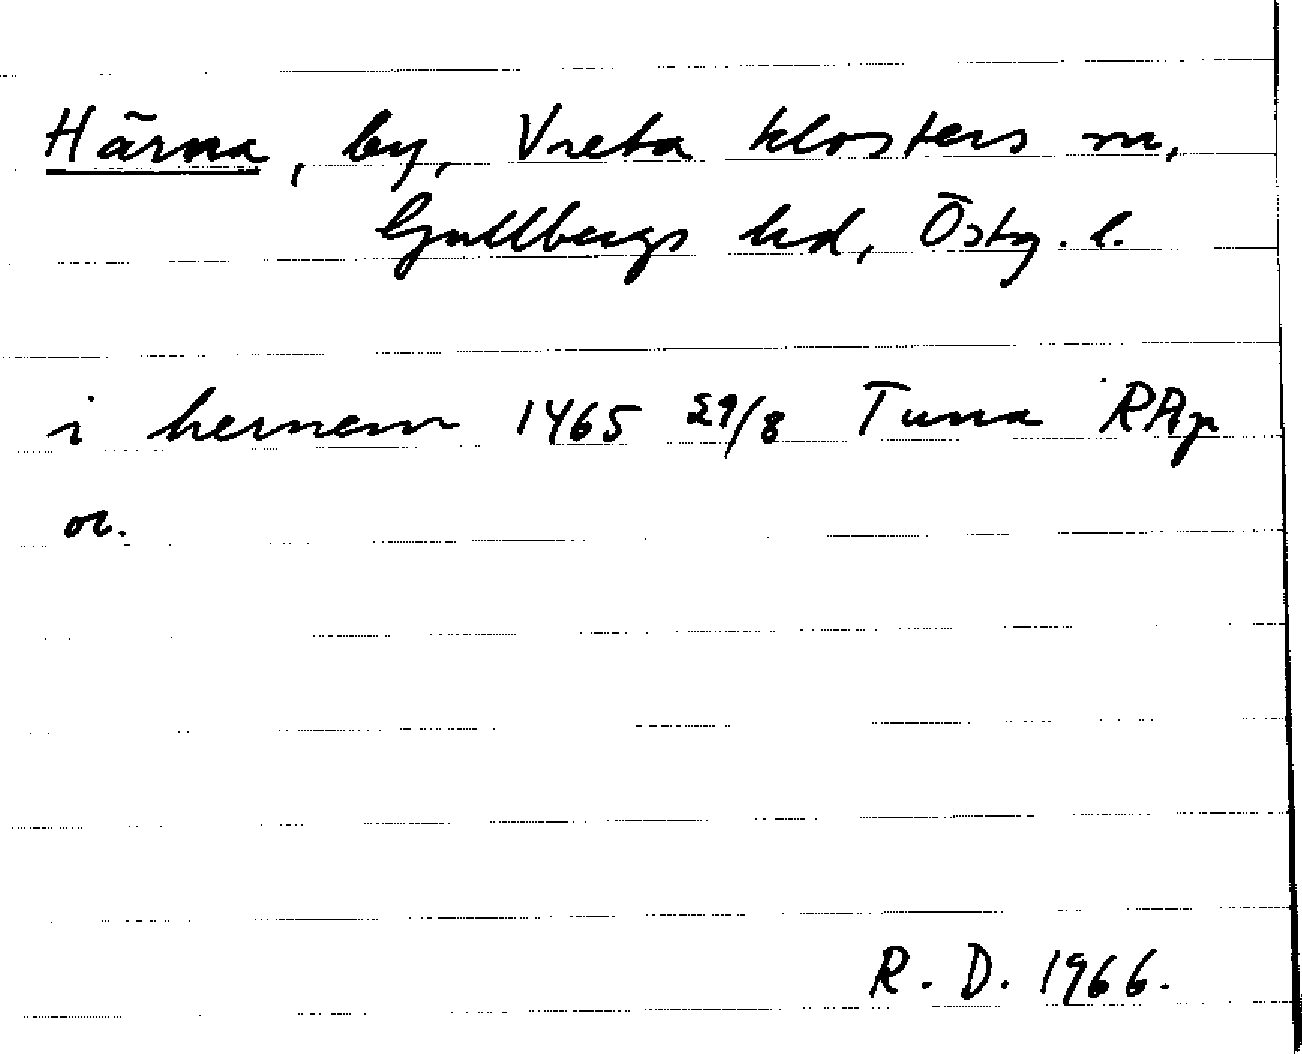 Härna, by, Vreta klosters sn,
Gullbergs hd, Östg. l.
i hernom 1465 29/8 Tuna RAp
or.
R. D. 1966.